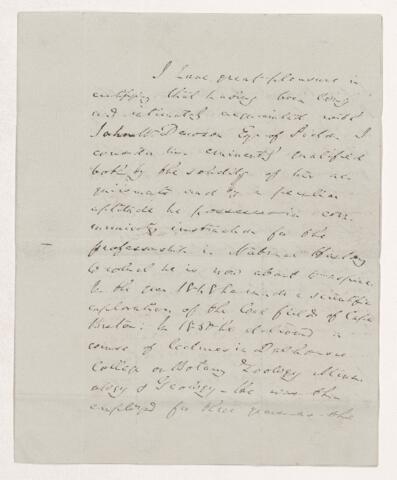 I have great pleasure in
certifying that having been long
and intimately acquainted with
John W Dawson Esq of Pictou I
consider him eminently qualified
both by the solidity of his ac
quirements and by a peculiar
aptitude he possesses in com
municating instruction for the
professorship in Natural History
to which he is now about to aspire.
In the year 1848 he made a scientific
exploration of the Coal fields of Cape
Breton: In 1850 he delivered a
course of lectures in Dalhousie
College on Botany Zoology Miner
alogy & Geology - He was then
employed for three years as the